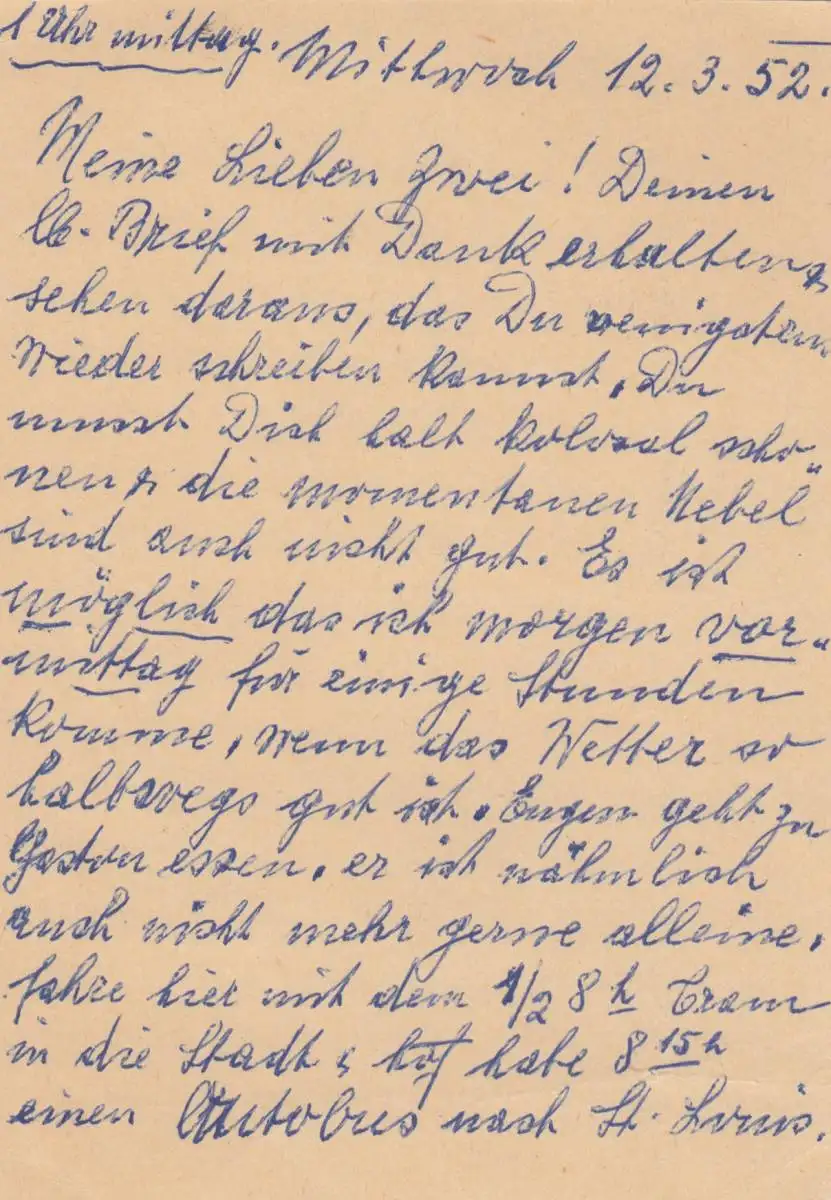 1 Uhr mittag. Mittwoch 12. 3. 52.
Meine Lieben Zwei! Deinen
lb. Brief mit Dank erhalten &
sehen daraus, das Du wenigstens
wieder schreiben kannst. Du
musst Dich halt kolosal scho"
nen & die momentanen Nebel
sind auch nicht gut. Es ist
möglich das ich morgen vor"
mittag für einige Stunden
komme, wenn das Wetter so
halbwegs gut ist. Eugen geht zu
Gaston essen. er ist nähmlich
auch nicht mehr gerne alleine.
fahre hier mit dem 1/2 8 h Tram
in die Stadt & habe 8 15 h
einen Autobus nach St. Louis.